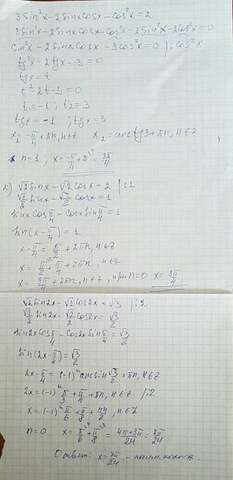 3sin²x-2sinxcosx-cos²x=2
3sin²x-2sinxcosx-cos²x-2sin²x-2cos²x=0
sin²x-2sinxcosx-3cos²x=0 |:cos²x
tg²x-2tgx-3=0
tgx=t
t²-2t-3=0
t₁=-1; t₂=3
tgx=-1 tgx=3
x₁=-π/4+πn, n∈Z x₂=arctg3+πn, n∈Z
n=1, x=-π/4+π=3π/4
√2sinx-√2cosx=2 |:2
√2/2sinx-√2/2cosx=1
sinxcosπ/4-cosxsinπ/4=1
sin(x-π/4)=1
x-π/4=π/2+2πn, n∈Z
x=π/2+π/4+2πn, n∈Z
x=3π/4+2πn, n∈Z, при n=0 x=3π/4
√2sin2x-√2cos2x=√3 |:2
√2/2sin2x-√2/2cos2x=√3/2
sin2xcosπ/4-cos2xsinπ/4=√3/2
sin(2x-π/4)=√3/2
2x-π/4=(-1)ⁿarcsin√3/2+πn, n∈Z
2x=(-1)ⁿπ/3+π/4+πn, n∈Z |:2
x=(-1)ⁿπ/6+π/8+πn/2, n∈Z
n=0 x=π/6+π/8=4π+3π/24=7π/24
Ответ: x=7π/24